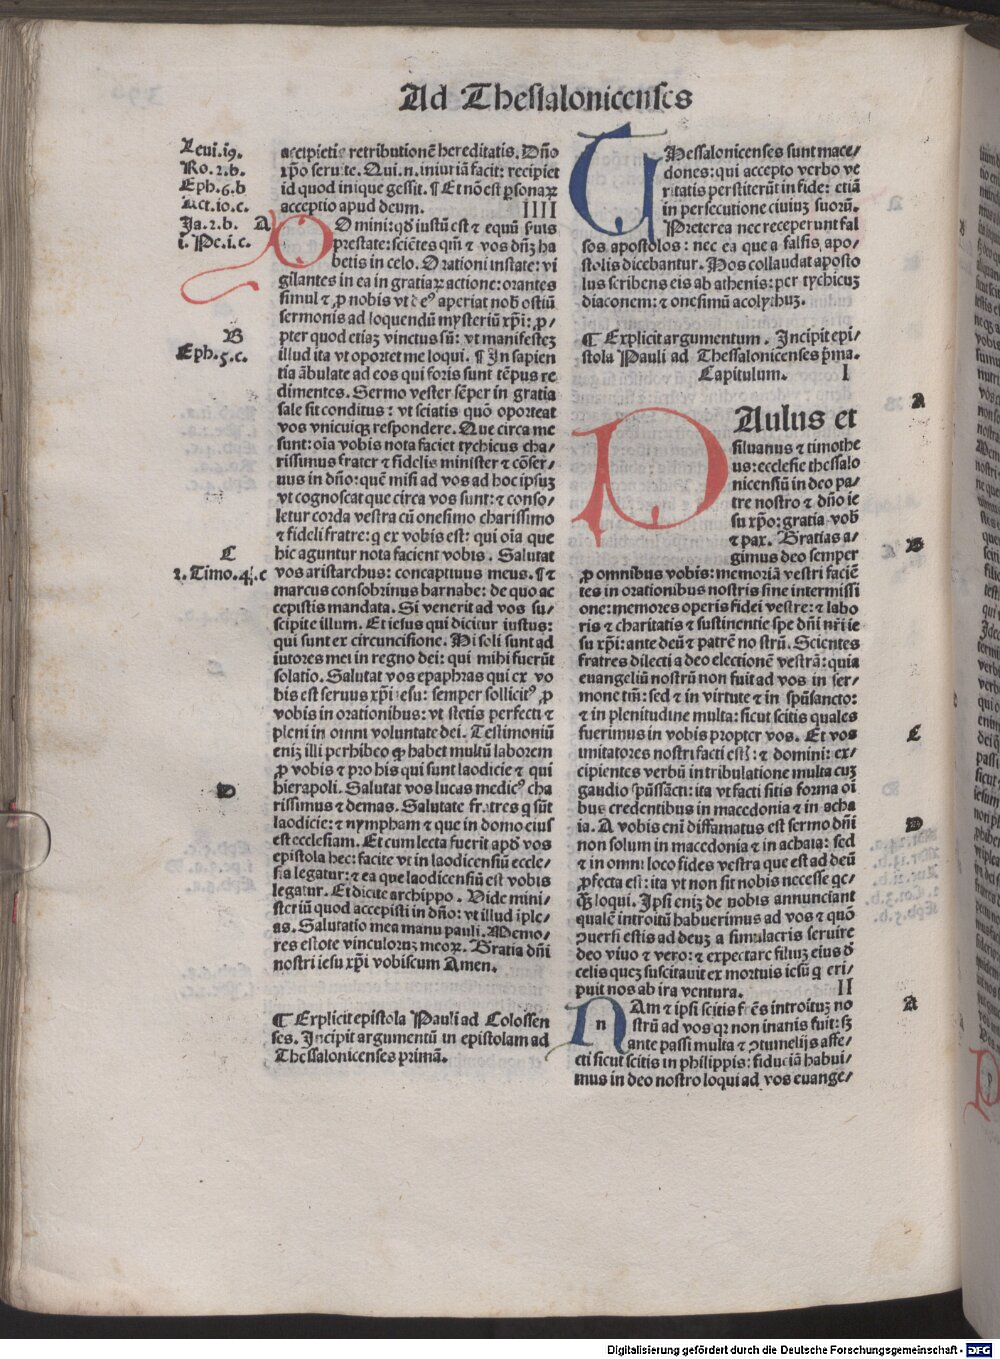 Ad Thessalonicenses
Leui.19.
Ro.2.b.
Eph.6.b
Act.10.c.
Ja.2.b. A
1.Pe.1.c.
B
Eph.5.c.
C
2.Timo.4.c
D
accipietis retributionē hereditatis. Dño
xp̄o seruite. Qui.n.iniuriā facit: recipiet
id quod inique gessit. ¶ Et nō est ꝑsonaꝝ
acceptio apud deum. IIII
DOmini: qđ iustū est ⁊ equū ẜuis
prestate: sciētes qm̄ ⁊ vos dn̄ꝫ ha
betis in celo. Orationi instate: vi
gilantes in ea in gratiaꝝ actione: orantes
simul ⁊ ꝓ nobis vt deꝰ aperiat nob̄ ostiū
sermonis ad loquendū mysteriū xp̄i: ꝓ/
pter quod etiaꝫ vinctus sū: vt manifesteꝫ
illud ita vt oportet me loqui. ¶ In sapien
tia ābulate ad eos qui foris sunt tēpus re
dimentes. Sermo vester sēper in gratia
sale sit conditus: vt sciatis quō oporteat
vos vnicuiqꝫ respondere. Que circa me
sunt: oīa vobis nota faciet tychicus cha/
rissimus frater ⁊ fidelis minister ⁊ cōser/
uus in dño: quē misi ad vos ad hoc ipsuꝫ
vt cognoscat que circa vos sunt: ⁊ conso/
letur corda vestra cū onesimo charissimo
⁊ fideli fratre: q̇ ex vobis est: qui oīa que
hic aguntur nota facient vobis. Salutat
vos aristarchus: concaptiuus meus. ¶ ⁊
marcus consobrinus barnabe: de quo ac
cepistis mandata. Si venerit ad vos su/
scipite illum. Et iesus qui dicitur iustus:
qui sunt ex circuncisione. Hi soli sunt ad
iutores mei in regno dei: qui mihi fuerūt
solatio. Salutat vos epaphras qui ex vo
bis est seruus xp̄i iesu: semper sollicitꝰ ꝓ
vobis in orationibus: vt stetis perfecti ⁊
pleni in omni voluntate dei. Testimoniū
eniꝫ illi perhibeo ꝙ habet multū laborem
ꝓ vobis ⁊ pro his qui sunt laodicie ⁊ qui
hierapoli. Salutat vos lucas medicꝰ cha
rissimus ⁊ demas. Salutate fratres q̇ sūt
laodicie: ⁊ nympham ⁊ que in domo eius
est ecclesiam. Et cum lecta fuerit apđ vos
epistola hec: facite vt in laodicensiū eccle/
sia legatur: ⁊ ea que laodicensiū est vobis
legatur. Et dicite archippo. Vide mini/
steriū quod accepisti in dño: vt illud iple/
as. Salutatio mea manu pauli. Memo/
res estote vinculoruꝫ meoꝝ. Gratia dn̄i
nostri iesu xp̄i vobiscum Amen.
¶ Explicit epistola Pauli ad Colossen
ses. Incipit argumentū in epistolam ad
Thessalonicenses primā.
THessalonicenses sunt mace/
dones: qui accepto verbo ve
ritatis perstiterūt in fide: etiā
in persecutione ciuiuꝫ suorū.
Preterea nec receperunt fal
sos apostolos: nec ea que a falsis apo/
stolis dicebantur. Hos collaudat aposto
lus scribens eis ab athenis: per tychicuꝫ
diaconem: ⁊ onesimū acolythuꝫ.
¶ Explicit argumentum. Incipit epi/
stola Pauli ad Thessalonicenses p̄ma.
Capitulum. I
A
PAulus et
siluanus ⁊ timothe
us: ecclesie thessalo
nicensiū in deo pa/
tre nostro ⁊ dño ie
su xp̄o: gratia vob̄
⁊ pax. Gratias a/
B
gimus deo semper
ꝓ omnibus vobis: memoriā vestri faciē
tes in orationibus nostris sine intermissi
one: memores operis fidei vestre: ⁊ labo
ris ⁊ charitatis ⁊ sustinentie spe dn̄i nr̄i ie
su xp̄i: ante deū ⁊ patrē nostrū. Scientes
fratres dilecti a deo electionē vestrā: quia
euangeliū nostrū non fuit ad vos in ser/
mone tm̄: sed ⁊ in virtute ⁊ in spūsancto:
⁊ in plenitudine multa: sicut scitis quales
fuerimus in vobis propter vos. Et vos
C
imitatores nostri facti estꝭ: ⁊ domini: ex/
cipientes verbū in tribulatione multa cuꝫ
gaudio spūssācti: ita vt facti sitis forma oī
bus credentibus in macedonia ⁊ in acha
D
ia. A vobis enī diffamatus est sermo dn̄i
non solum in macedonia ⁊ in achaia: sed
⁊ in omni loco fides vestra que est ad deū
ꝓfecta est: ita vt non sit nobis necesse qc̄/
qꝫ loqui. Ipsi eniꝫ de nobis annunciant
qualē introitū habuerimus ad vos ⁊ quō
ꝯuersi estis ad deuꝫ a simulacris seruire
deo viuo ⁊ vero: ⁊ expectare filiuꝫ eius đ
celis queꝫ suscitauit ex mortuis iesū q̇ eri/
puit nos ab ira ventura. II
A
NAm ⁊ ipsi scitis fr̄es introituꝫ no
n
strū ad vos qꝛ non inanis fuit: sꝫ
ante passi multa ⁊ ꝯtumelijs affe/
cti sicut scitis in philippis: fiduciā habui/
mus in deo nostro loqui ad vos euange/
Digitalisierung gefördert durch die Deutsche Forschungsgemeinschaft - DFG